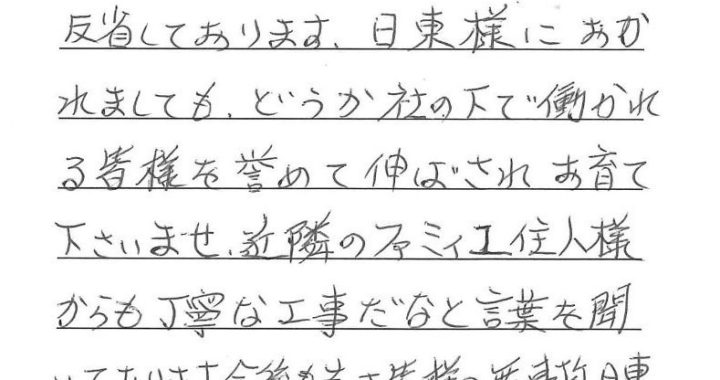 反省しております。日東様におか
れましても、どうか社の下で働かれ
る皆様を誉めて伸ばされお育て
下さいませ、近隣のファミィエ住人様
からも丁寧な工事だなと言葉を聞
いております今後も